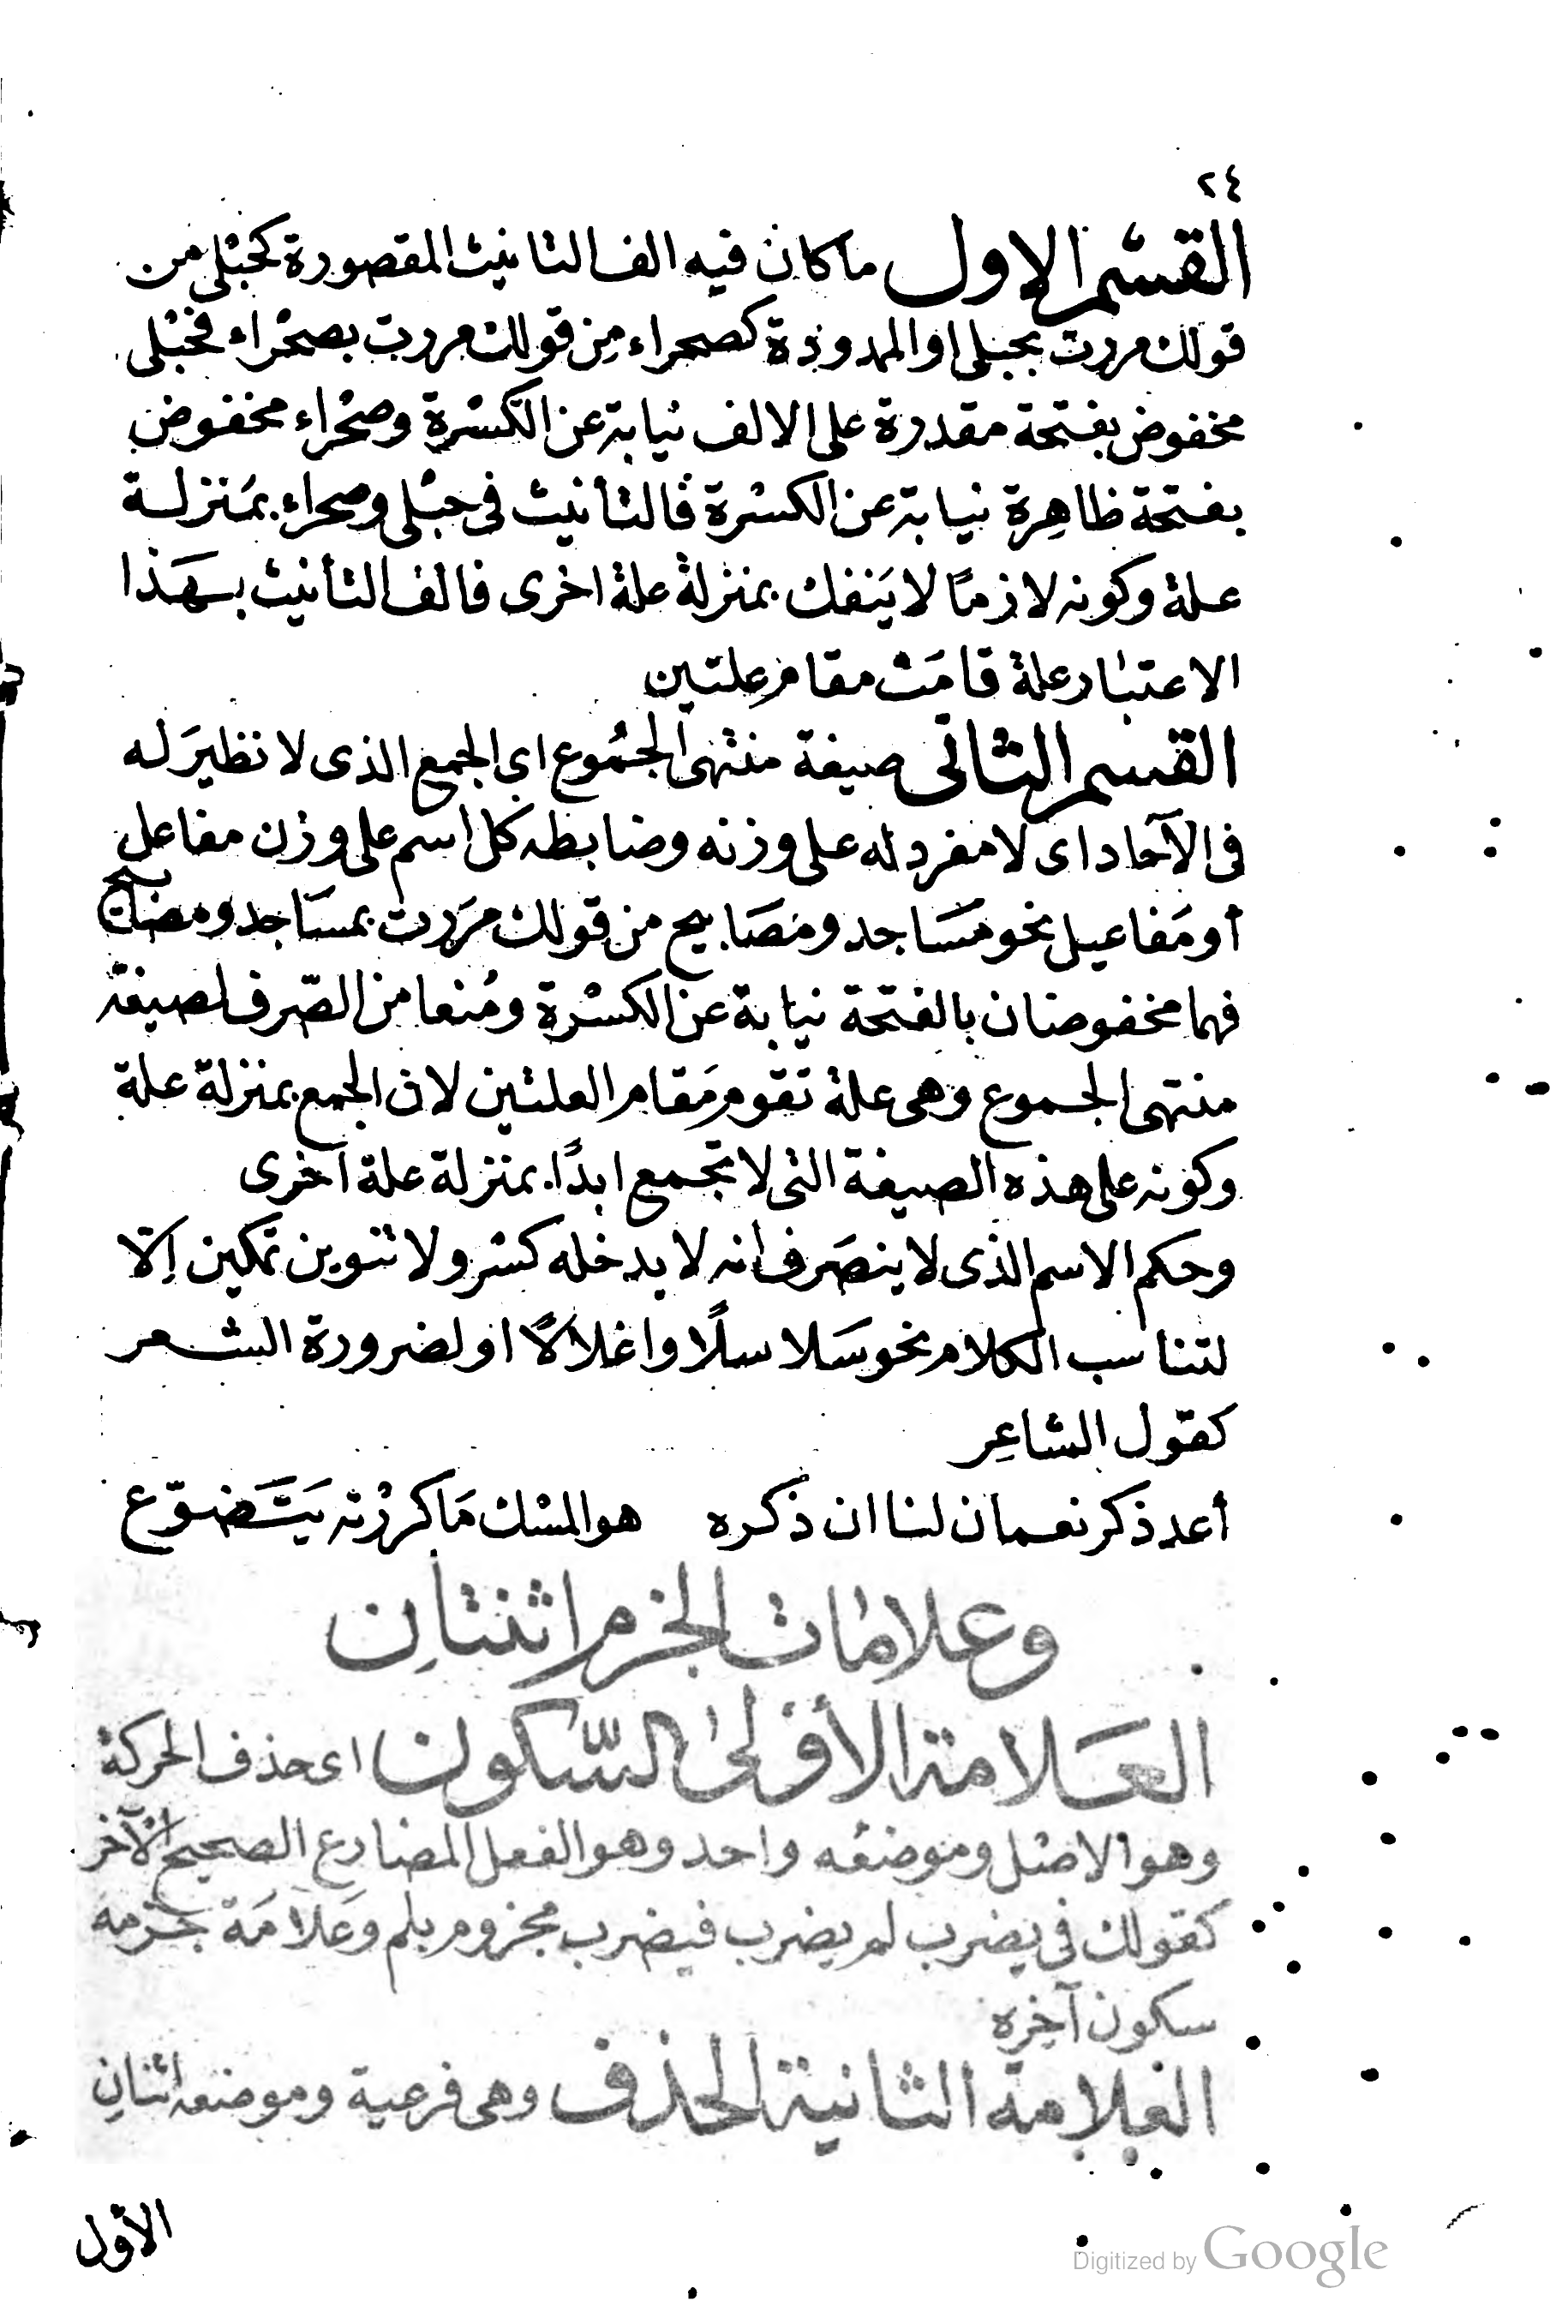 ٢٤
القسْم الاول ماكان فيه الف التانيث المقصورة كحبْلى من
قولك مررت بحبلى او الممدودة كصحراء مِن قولك مررت بصحْراء فحبْلى
مخفوض بفتحة مقدرة على الالف نيابة عن الكسْرة وصحْراء مخفوض
بفتحة ظاهِرة نيابة عن الكسْرة فالتأنيث فى حبْلى وصحراء بمَنزلة
علة وكونه لازمًا لا يَنفك بمنزلة علة اخرى فالف التأنيث بهَذا
الاعتبار علة قامَت مقام عِلتين
القسم الثانى صيغة منتهى الجمُوع اى الجمع الذى لا نظيرَ له
فى الآحاد اى لا مفرد له على وزنه وضابطه كل اسم على وزن مفاعل
أو مَفاعيل نحو مَسَاجد ومَصَابيح من قولك مرَرت بمسَاجد ومصَابيح
فهما مخفوضان بالفتحة نيابة عن الكسْرة ومُنعا من الصّرف لصيغة
منتهى الجموع وهى علة تقوم مَقام العلتين لان الجمع بمنزلة علة
وكونه على هذه الصيغة التى لا تجمع ابدًا بمنزلة علة اخرى
وحكم الاسم الذى لا ينصَرف انه لا يدخله كسْر ولا تنوين تمكين اِلّا
لتناسب الكلام نحو سَلاسلًا واغلالًا او لضرورة الشعر
كقول الشاعِر
أعد ذكر نعمان لنا ان ذكره هو المسْك مَا كررْته يَتَضوّع
وعلامات الجزم اثنتانِ
العَلامة الأولىٰ السّكون اى حذف الحركة
وهو الاصْل وموضعُه واحد وهو الفعل المضارع الصحيح الآخر
كقولك فى يضرب لم يضرب فيضرب مجزوم بلم وعَلامَة جزمه
سكون آخِره
العلامة الثانية الحذف وهى فرعية وموضعه اثنانِ
الأول
Digitized by Google